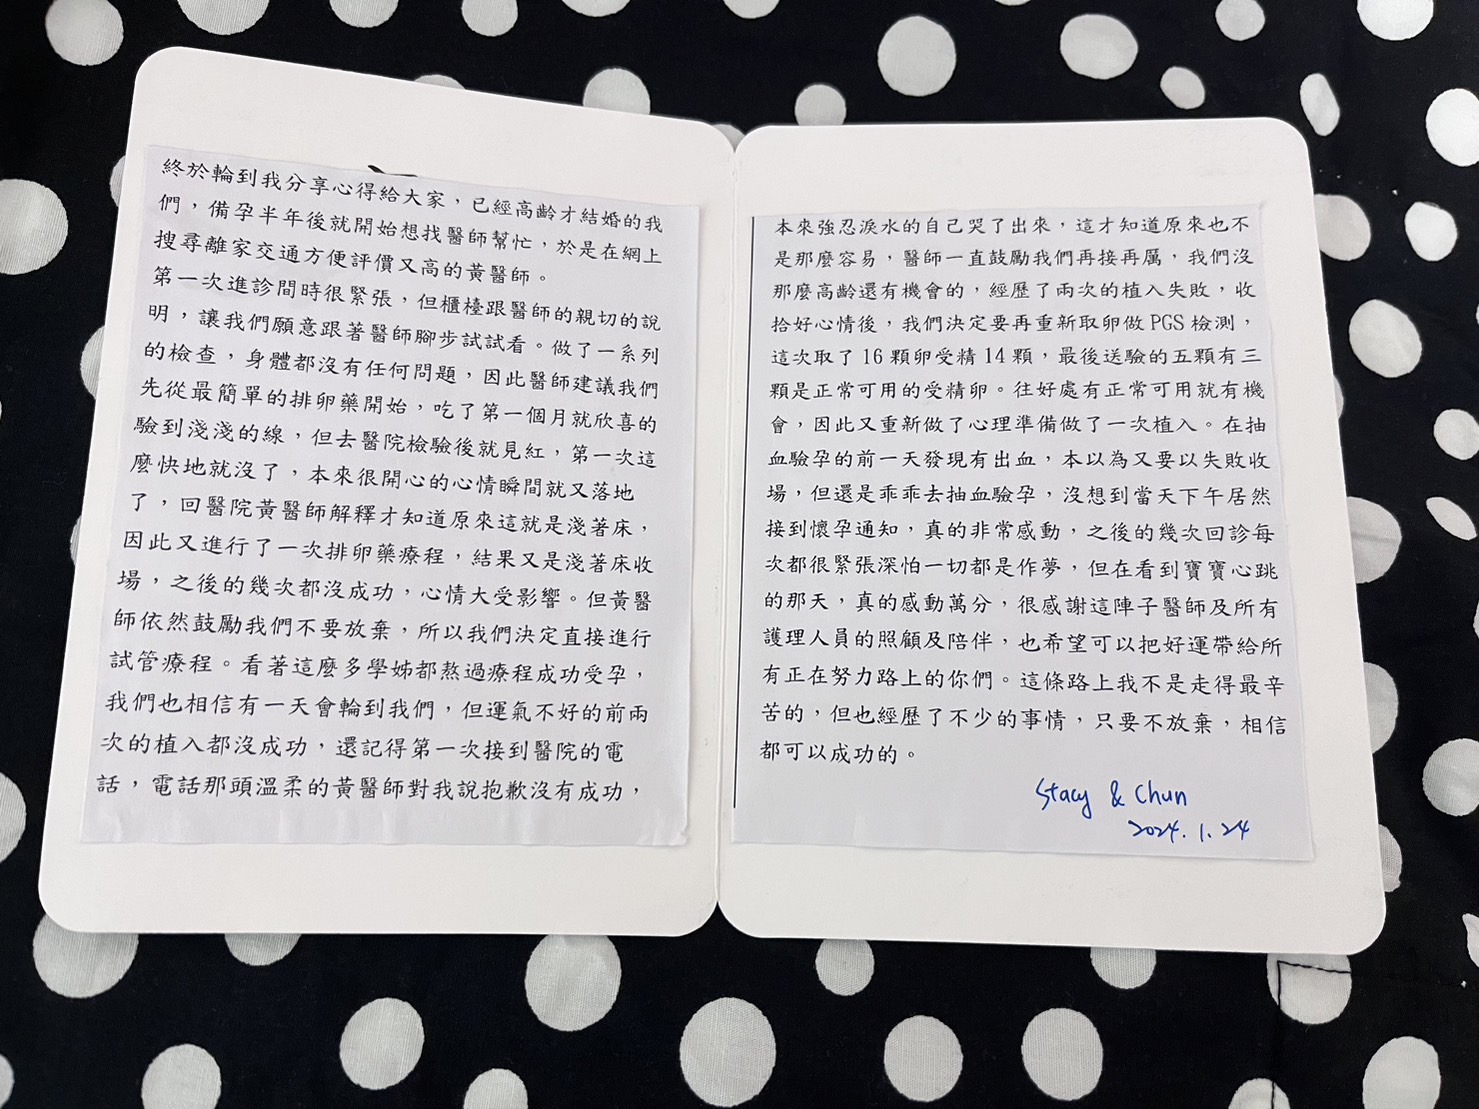 終於輪到我分享心得給大家，已經高齡才結婚的我
們，備孕半年後就開始想找醫師幫忙，於是在網上
搜尋離家交通方便評價又高的黃醫師。
第一次進診間時很緊張，但櫃檯跟醫師的親切的說
明，讓我們願意跟著醫師腳步試試看。做了一系列
的檢查，身體都沒有任何問題，因此醫師建議我們
先從最簡單的排卵藥開始，吃了第一個月就欣喜的
驗到淺淺的線，但去醫院檢驗後就見紅，第一次這
麼快地就沒了，本來很開心的心情瞬間就又落地
了，回醫院黃醫師解釋才知道原來這就是淺著床，
因此又進行了一次排卵藥療程，結果又是淺著床收
場，之後的幾次都沒成功，心情大受影響。但黃醫
師依然鼓勵我們不要放棄，所以我們決定直接進行
試管療程。看著這麼多學姊都熬過療程成功受孕，
我們也相信有一天會輪到我們，但運氣不好的前兩
次的植入都沒成功，還記得第一次接到醫院的電
話，電話那頭溫柔的黃醫師對我說抱歉沒有成功，
本來強忍淚水的自己哭了出來，這才知道原來也不
是那麼容易，醫師一直鼓勵我們再接再厲，我們沒
那麼高齡還有機會的，經歷了兩次的植入失敗，收
拾好心情後，我們決定要再重新取卵做 PGS 檢測，
這次取了 16 顆卵受精 14 顆，最後送驗的五顆有三
顆是正常可用的受精卵。往好處有正常可用就有機
會，因此又重新做了心理準備做了一次植入。在抽
血驗孕的前一天發現有出血，本以為又要以失敗收
場，但還是乖乖去抽血驗孕，沒想到當天下午居然
接到懷孕通知，真的非常感動，之後的幾次回診每
次都很緊張深怕一切都是作夢，但在看到寶寶心跳
的那天，真的感動萬分，很感謝這陣子醫師及所有
護理人員的照顧及陪伴，也希望可以把好運帶給所
有正在努力路上的你們。這條路上我不是走得最辛
苦的，但也經歷了不少的事情，只要不放棄，相信
都可以成功的。
Stacy & Chun
2024. 1. 24